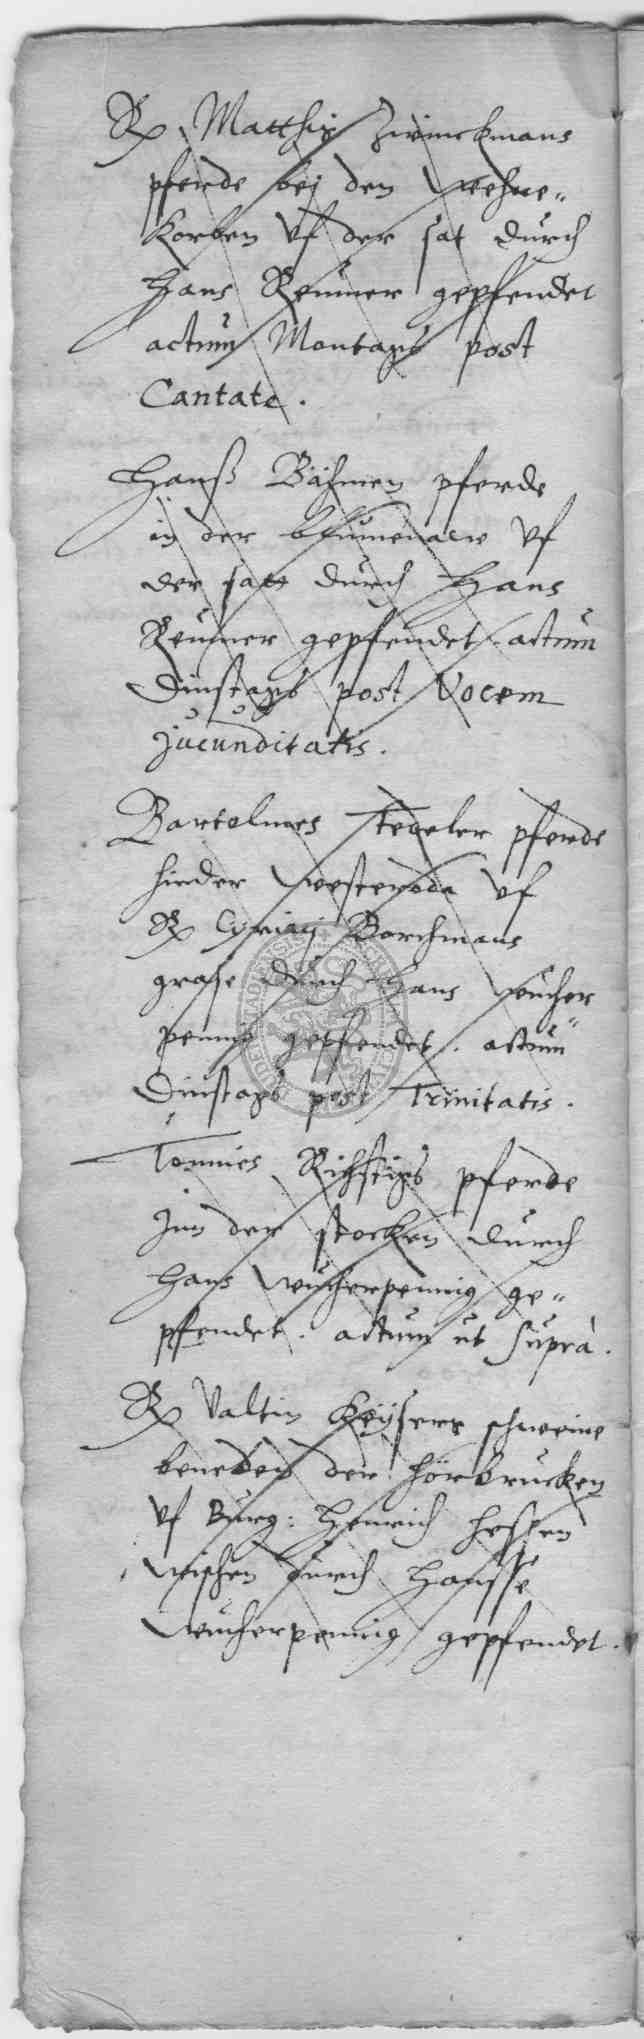 R Matthis Zwinckmans
pferde bej den wehne-
korben vf der sat durch
Hans Reumer gepfendet
actum Montags post
Cantate.
Hanß Bähmen pferde
in der blumenaw vf
der satt durch Hans
Reumer gepfendet. actum
Dinstags post Vocem
jucunditatis.
Bartolmes Tegeler pferde
hinder westeroda vf
R Ciriacj Borchmans
grase durch Hans wucher
pennig gepfendet. actum
Dinstags post Trinitatis.
Tonnies Richstigs pferde
jnn der stocken durch
Hans wucherpennig ge-
pfendet. actum ut suprà.
R Valtin Keysers schweine
beneden der Hörbrucken
vf Burg: Henrich Hessen
wischen durch Hansse
wucherpennig gepfendet.